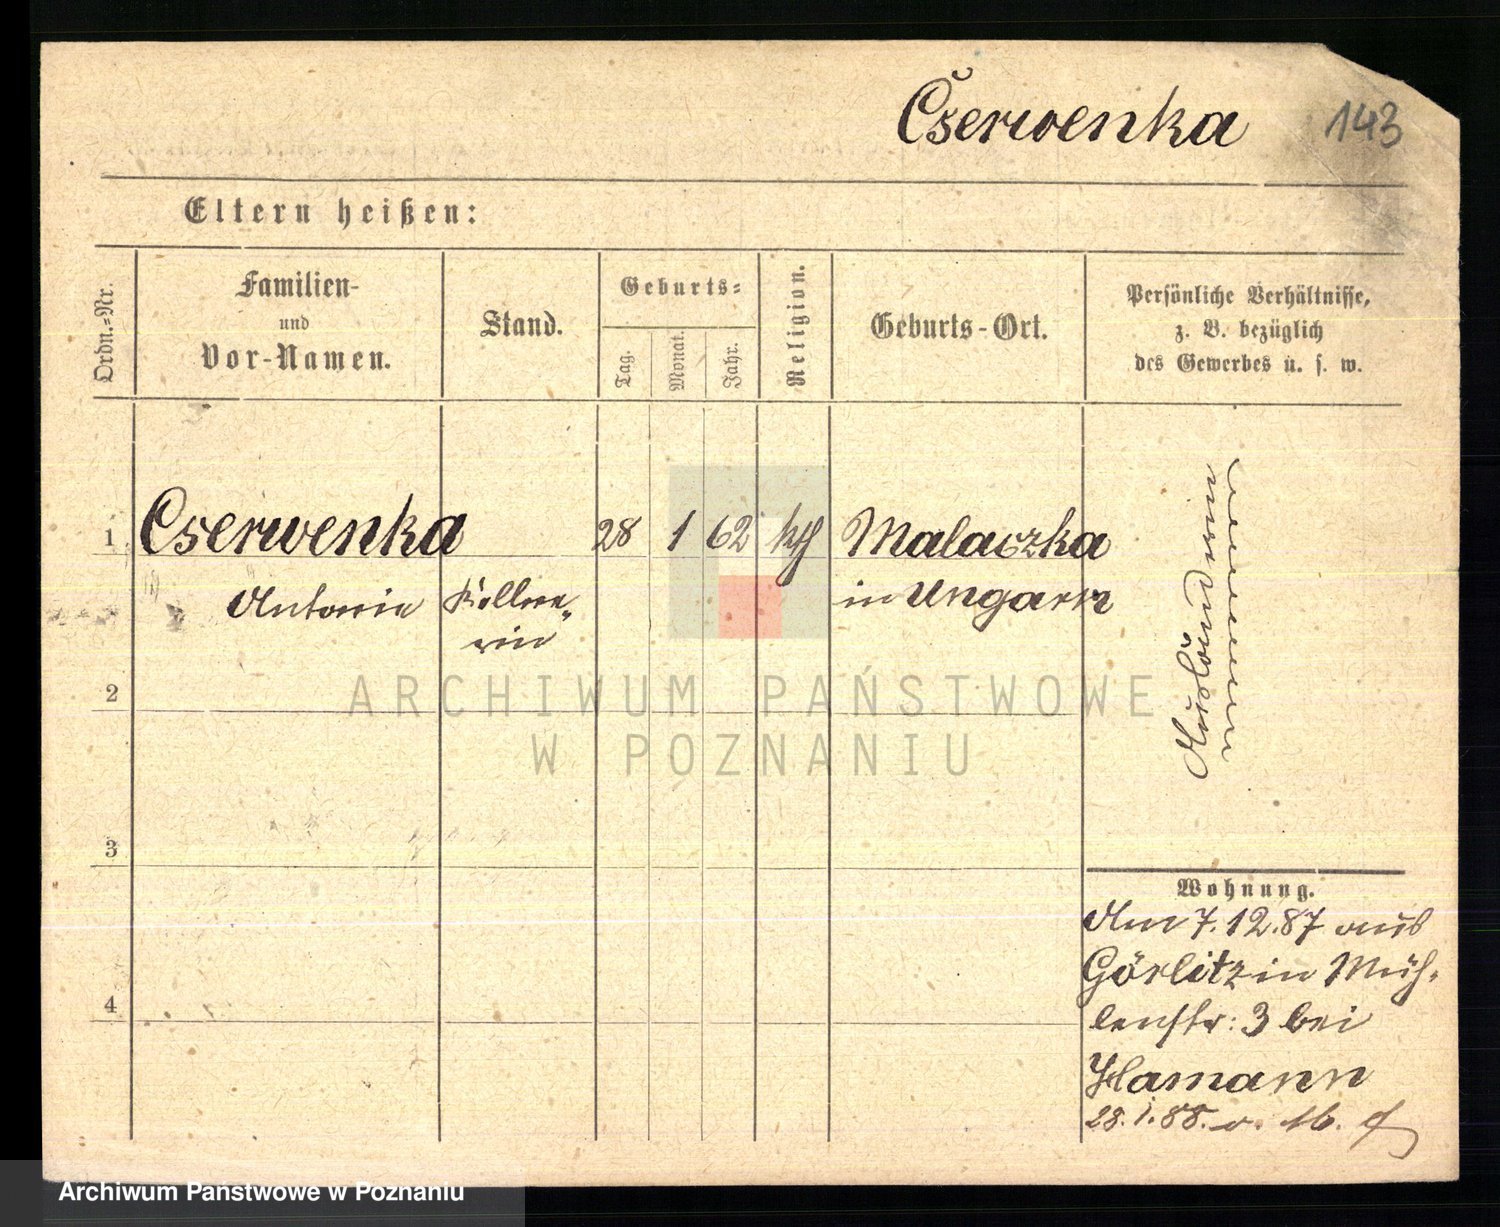 Čserwenka 143
Eltern heißen:
Ordn.-Nr.
Familien-
und
Vor-Namen.
Stand.
Geburts-
Tag.
Monat.
Jahr.
Religion.
Geburts-Ort.
Persönliche Verhältnisse,
z. B. bezüglich
des Gewerbes u. s. w.
1 Cserwenka 28 1 62 kth Malaczka
Antonie Kellne- in Ungarn
rin
Ausländerin
2
3
4
Wohnung.
Am 7.12.87 aus
Görlitz in Müh-
lenstr: 3 bei
Hamann
28.1.88.
ARCHIWUM PAŃSTWOWE
W POZNANIU
Archiwum Państwowe w Poznaniu